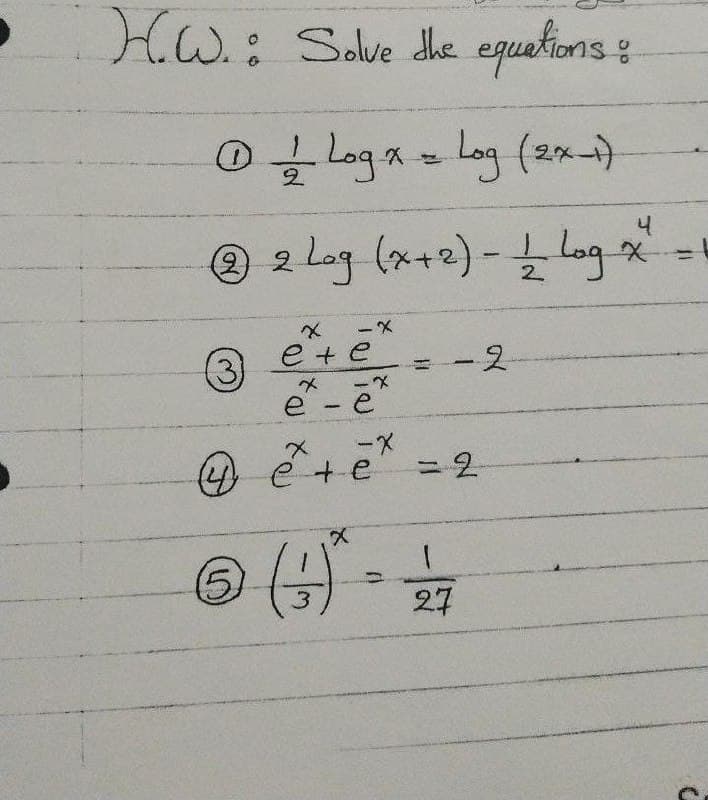 H.W.: Solve the equations:
① 1/2 Log x = Log (2x-1)
② 2 Log (x+2) - 1/2 Log x⁴ =
③ (eˣ + e⁻ˣ)/(eˣ - e⁻ˣ) = -2
④ eˣ + e⁻ˣ = 2
⑤ (1/3)ˣ = 1/27